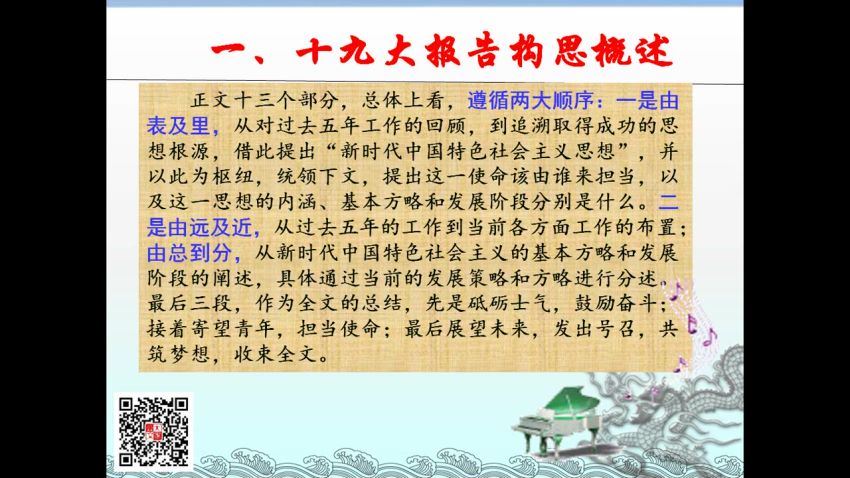 一、十九大报告构思概述
正文十三个部分，总体上看，遵循两大顺序：一是由
表及里，从对过去五年工作的回顾，到追溯取得成功的思
想根源，借此提出“新时代中国特色社会主义思想”，并
以此为枢纽，统领下文，提出这一使命该由谁来担当，以
及这一思想的内涵、基本方略和发展阶段分别是什么。二
是由远及近，从过去五年的工作到当前各方面工作的布置；
由总到分，从新时代中国特色社会主义的基本方略和发展
阶段的阐述，具体通过当前的发展策略和方略进行分述。
最后三段，作为全文的总结，先是砥砺士气，鼓励奋斗；
接着寄望青年，担当使命；最后展望未来，发出号召，共
筑梦想，收束全文。